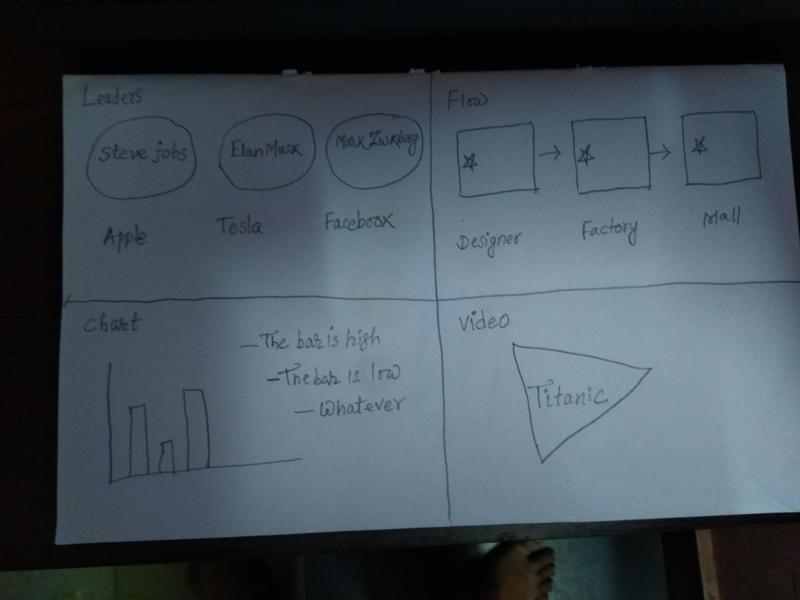 Leaders
Steve jobs
Elan Musk
Mark Zwkberg
Apple
Tesla
Facebook
Flow
Designer
Factory
Mall
Chart
- The bar is high
- The bar is low
- Whatever
Video
Titanic